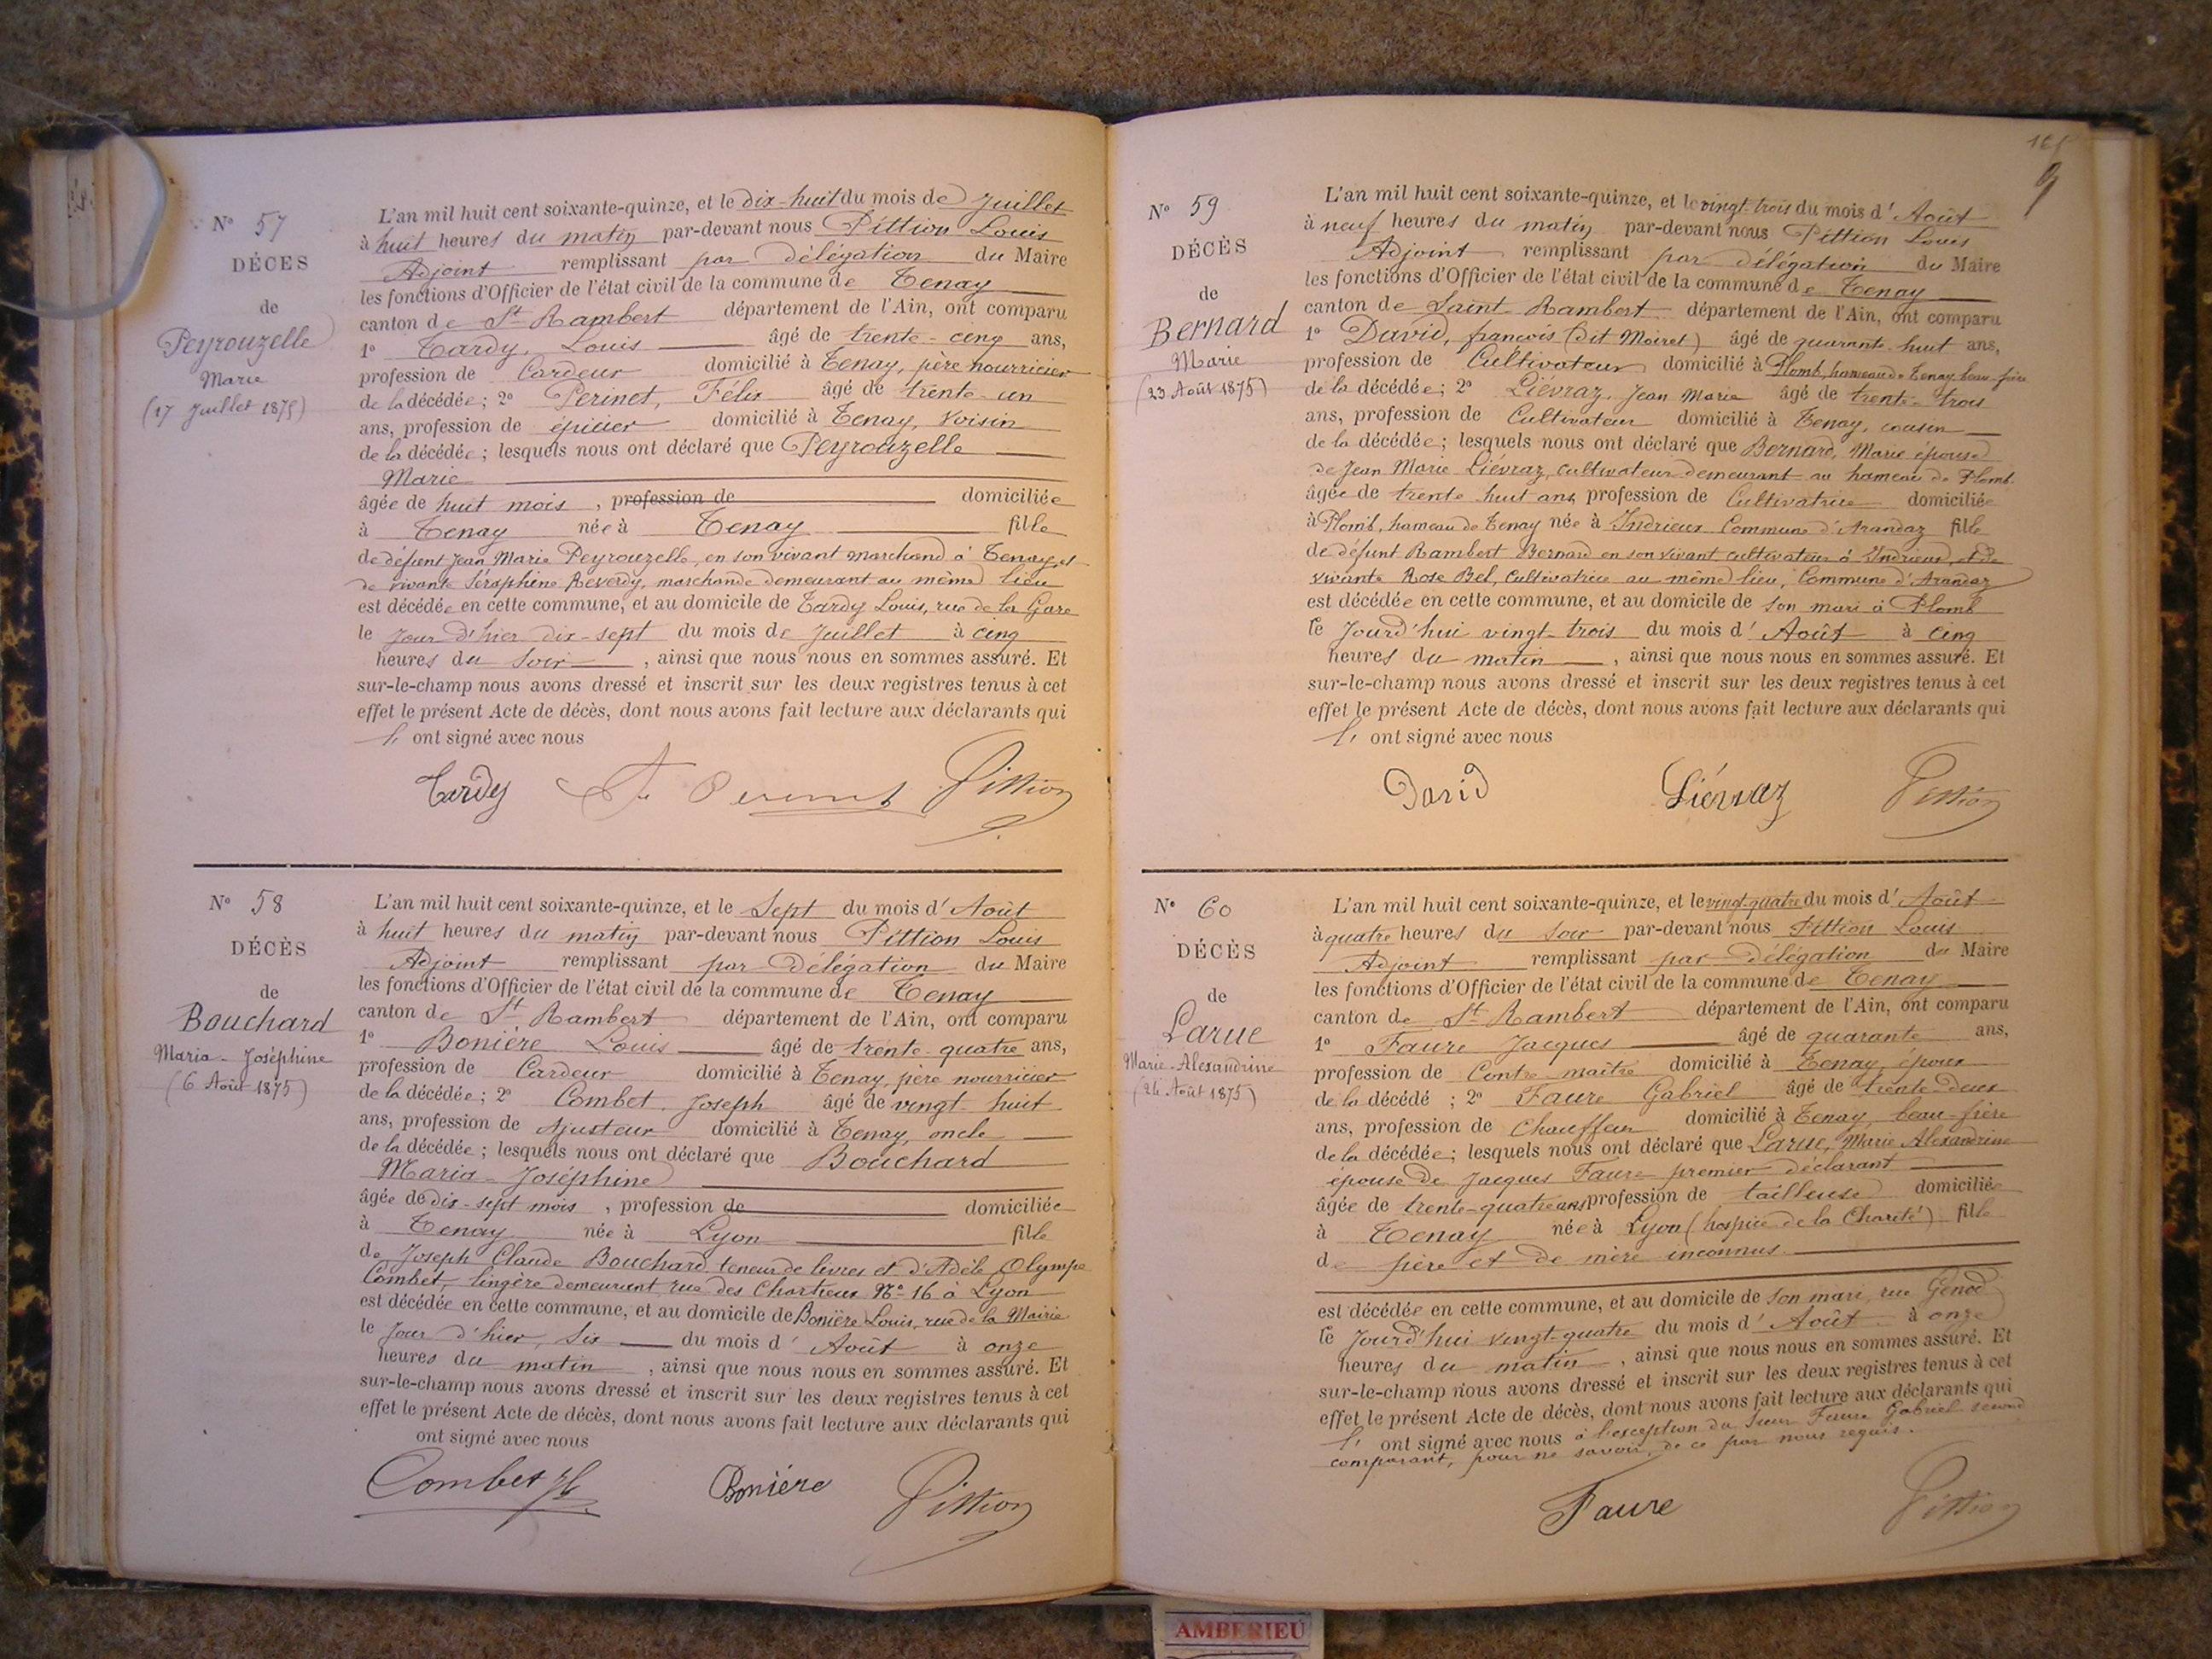 N° 57
DÉCES
de
Peyrouzelle
Marie
(17 Juillet 1875)
L'an mil huit cent soixante-quinze, et le dix-huit du mois de Juillet
à huit heures du matin par-devant nous Pittion Louis
Adjoint remplissant par délégation du Maire
les fonctions d'Officier de l'état civil de la commune de Tenay
canton de St Rambert département de l'Ain, ont comparu
1° Tardy, Louis âgé de trente-cinq ans,
profession de Cardeur domicilié à Tenay, père nourricier
de la décédée; 2° Perinet, Félix âgé de trente-un
ans, profession de épicier domicilié à Tenay, voisin
de la décédée; lesquels nous ont déclaré que Peyrouzelle
Marie
âgée de huit mois, profession de domiciliée
à Tenay née à Tenay fille
de défunt Jean Marie Peyrouzelle, en son vivant marchand à Tenay et
de vivante Séraphine Reverdy, marchande demeurant au même lieu
est décédée en cette commune, et au domicile de Tardy Louis, rue de la Gare
le jour d'hier dix-sept du mois de Juillet à cinq
heures du soir, ainsi que nous nous en sommes assuré. Et
sur-le-champ nous avons dressé et inscrit sur les deux registres tenus à cet
effet le présent Acte de décès, dont nous avons fait lecture aux déclarants qui
l' ont signé avec nous
Tardy Perinet Pittion
N° 58
DÉCÈS
de
Bouchard
Maria-Joséphine
(6 Août 1875)
L'an mil huit cent soixante-quinze, et le Sept du mois d'Août
à huit heures du matin par-devant nous Pittion Louis
Adjoint remplissant par délégation du Maire
les fonctions d'Officier de l'état civil de la commune de Tenay
canton de St Rambert département de l'Ain, ont comparu
1° Bonière Louis âgé de trente-quatre ans,
profession de Cardeur domicilié à Tenay, père nourricier
de la décédée; 2° Combet, Joseph âgé de vingt-huit
ans, profession de Ajusteur domicilié à Tenay, oncle
de la décédée; lesquels nous ont déclaré que Bouchard
Maria-Joséphine
âgée de dix-sept mois, profession de domiciliée
à Tenay née à Lyon fille
de Joseph Claude Bouchard teneur de livres et d'Adèle Olympe
Combet, lingère demeurant rue des Chartreux N° 16 à Lyon
est décédée en cette commune, et au domicile de Bonière Louis, rue de la Mairie
le jour d'hier, six du mois d'Août à onze
heures du matin, ainsi que nous nous en sommes assuré. Et
sur-le-champ nous avons dressé et inscrit sur les deux registres tenus à cet
effet le présent Acte de décès, dont nous avons fait lecture aux déclarants qui
ont signé avec nous
Combet Bonière Pittion
9
N° 59
DÉCÈS
de
Bernard
Marie
(23 Août 1875)
L'an mil huit cent soixante-quinze, et le vingt-trois du mois d'Août
à neuf heures du matin par-devant nous Pittion Louis
Adjoint remplissant par délégation du Maire
les fonctions d'Officier de l'état civil de la commune de Tenay
canton de Saint Rambert département de l'Ain, ont comparu
1° David, françois (dit Moiret) âgé de quarante-huit ans,
profession de Cultivateur domicilié à Plomb, hameau de Tenay beau-frère
de la décédée; 2° Liévraz, Jean Marie âgé de trente-trois
ans, profession de Cultivateur domicilié à Tenay, cousin
de la décédée; lesquels nous ont déclaré que Bernard, Marie épouse
de Jean Marie Liévraz, cultivateur demeurant au hameau de Plomb
âgée de trente huit ans profession de Cultivatrice domiciliée
à Plomb, hameau de Tenay née à Indrieux Commune d'Arandaz fille
de défunt Rambert Bernard en son vivant cultivateur à Indrieux, et de
vivante Rose Bel, cultivatrice au même lieu, Commune d'Arandaz
est décédée en cette commune, et au domicile de son mari à Plomb
le jourd'hui vingt-trois du mois d'Août à cinq
heures du matin, ainsi que nous nous en sommes assuré. Et
sur-le-champ nous avons dressé et inscrit sur les deux registres tenus à cet
effet le présent Acte de décès, dont nous avons fait lecture aux déclarants qui
l' ont signé avec nous
David Liévraz Pittion
N° 60
DÉCÈS
de
Larue
Marie-Alexandrine
(24 Août 1875)
L'an mil huit cent soixante-quinze, et le vingt-quatre du mois d'Août
à quatre heures du soir par-devant nous Pittion Louis
Adjoint remplissant par délégation du Maire
les fonctions d'Officier de l'état civil de la commune de Tenay
canton de St Rambert département de l'Ain, ont comparu
1° Faure Jacques âgé de quarante ans,
profession de Contre-maître domicilié à Tenay, époux
de la décédé ; 2° Faure Gabriel âgé de trente-deux
ans, profession de Chauffeur domicilié à Tenay, beau-frère
de la décédée; lesquels nous ont déclaré que Larue, Marie Alexandrine
épouse de Jacques Faure premier déclarant
âgée de trente-quatre ans profession de tailleuse domiciliée
à Tenay née à Lyon (hospice de la Charité) fille
de père et de mère inconnus
est décédée en cette commune, et au domicile de son mari, rue Génod
le jourd'hui vingt-quatre du mois d'Août à onze
heures du matin, ainsi que nous nous en sommes assuré. Et
sur-le-champ nous avons dressé et inscrit sur les deux registres tenus à cet
effet le présent Acte de décès, dont nous avons fait lecture aux déclarants qui
l' ont signé avec nous à l'exception du sieur Faure Gabriel second
comparant, pour ne savoir, de ce par nous requis.
Faure Pittion
AMBERIEU